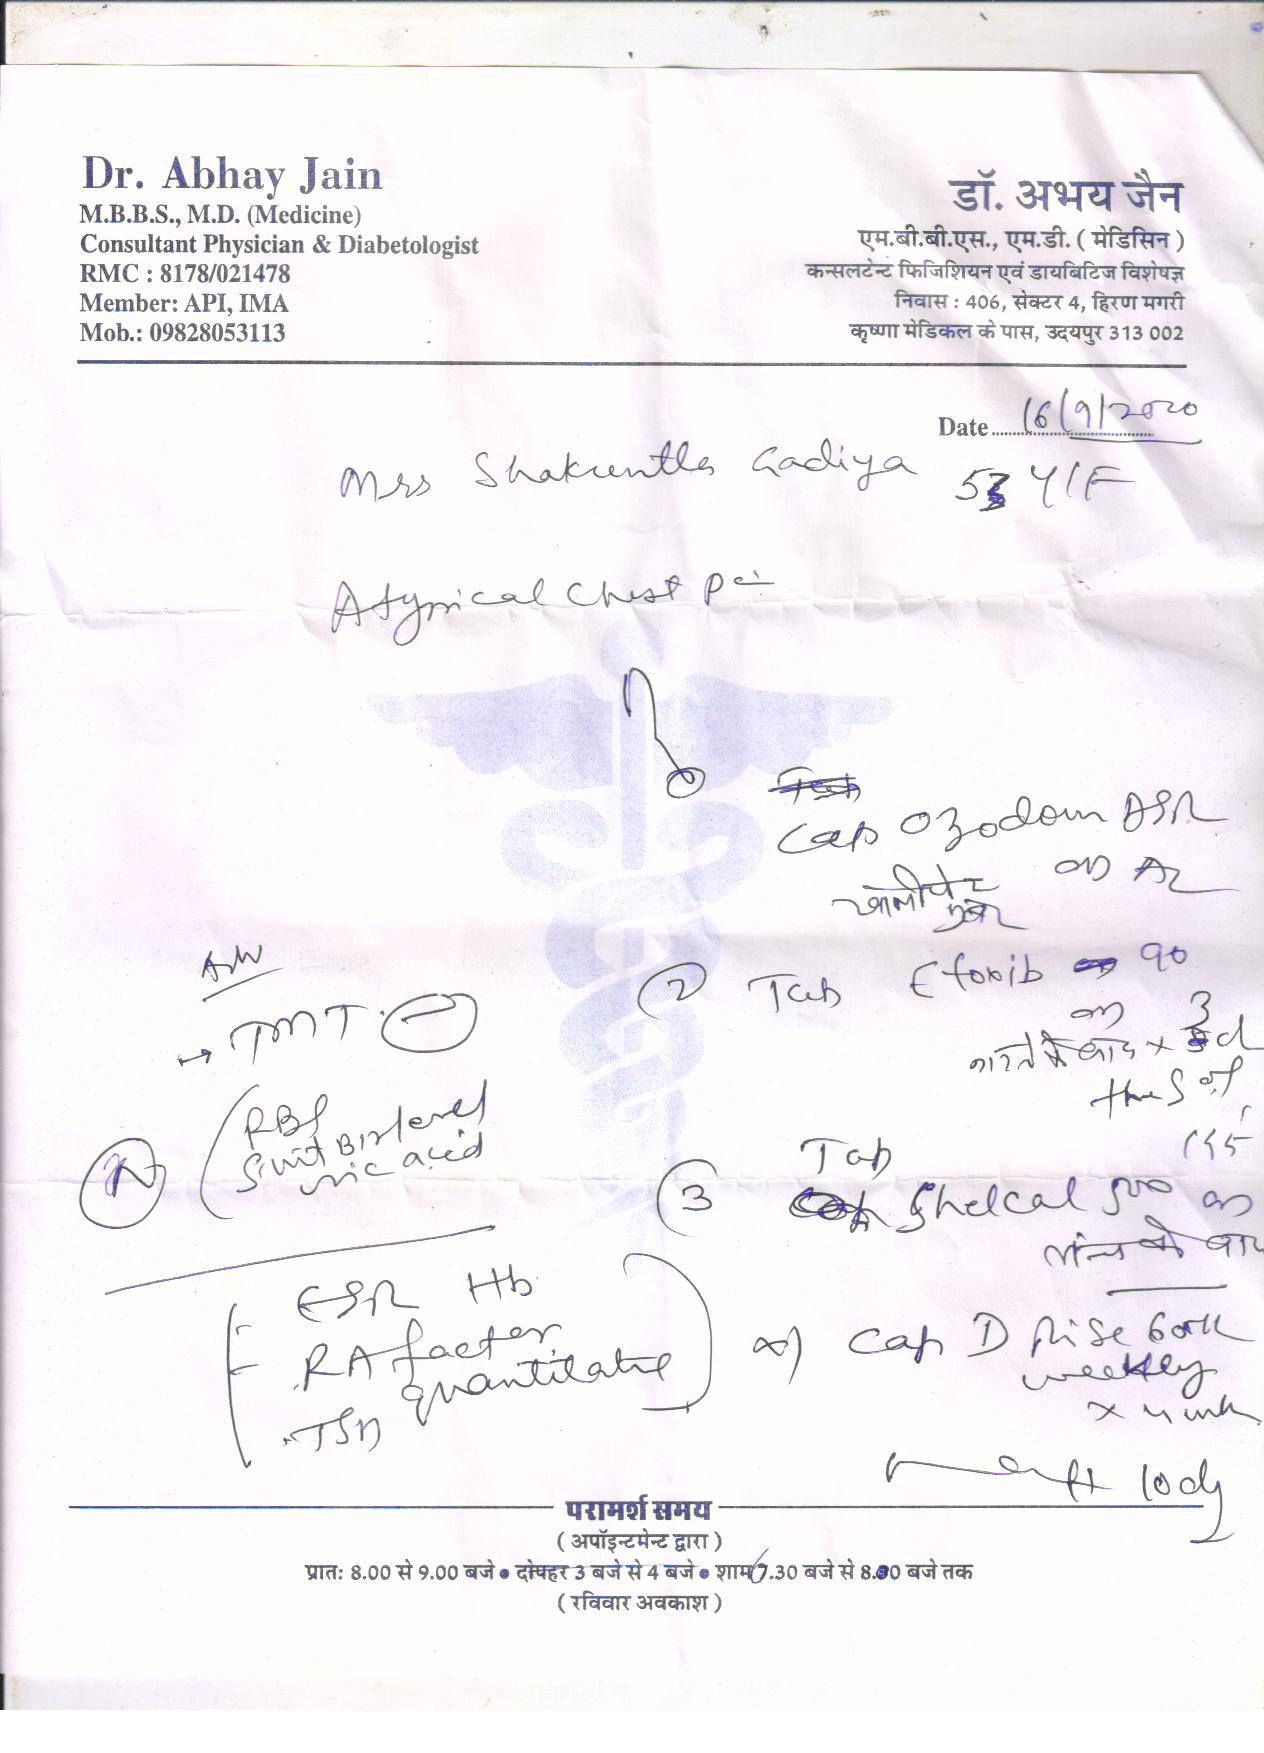 Dr. Abhay Jain
M.B.B.S., M.D. (Medicine)
Consultant Physician & Diabetologist
RMC : 8178/021478
Member: API, IMA
Mob.: 09828053113
डॉ. अभय जैन
एम.बी.बी.एस., एम.डी. ( मेडिसिन )
कन्सलटेन्ट फिजिशियन एवं डायबिटिज विशेषज्ञ
निवास : 406, सेक्टर 4, हिरण मगरी
कृष्णा मेडिकल के पास, उदयपुर 313 002
Date 16/9/2020
Mrs Shakuntla Gadiya 53 Y/F
Atypical Chest
Cap Ozodom DSR
खाली पेट
② Tab 90
3 d
Tab
③ Shelcal 500
Cap D Rise 60k
weekly
→ TMT
RBS
B12 level
uric acid
N
ESR Hb
RA factor
quantitative
परामर्श समय
( अपॉइन्टमेन्ट द्वारा )
प्रातः 8.00 से 9.00 बजे • दोपहर 3 बजे से 4 बजे • शाम 7.30 बजे से 8.30 बजे तक
( रविवार अवकाश )